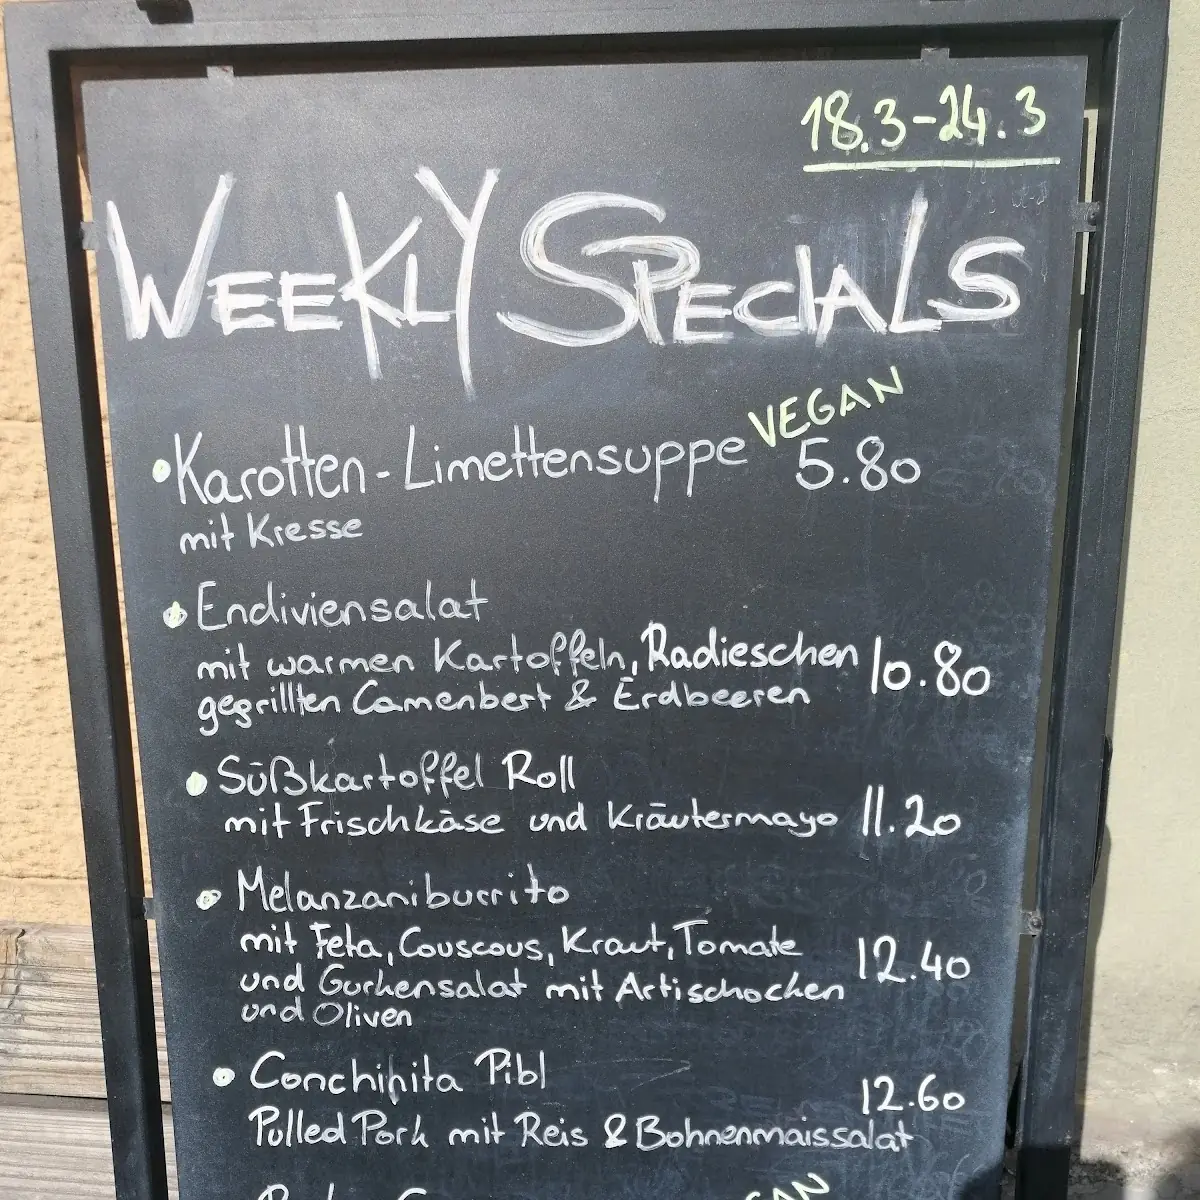 18.3-24.3
WEEKLY SPECIALS
VEGAN
• Karotten-Limettensuppe 5.80
mit Kresse
• Endiviensalat
mit warmen Kartoffeln, Radieschen 10.80
gegrillten Camenbert & Erdbeeren
• Süßkartoffel Roll
mit Frischkäse und Kräutermayo 11.20
• Melanzaniburrito
mit Feta, Couscous, Kraut, Tomate 12.40
und Gurkensalat mit Artischocken
und Oliven
• Conchipita Pibl
12.60
Pulled Pork mit Reis & Bohnenmaissalat